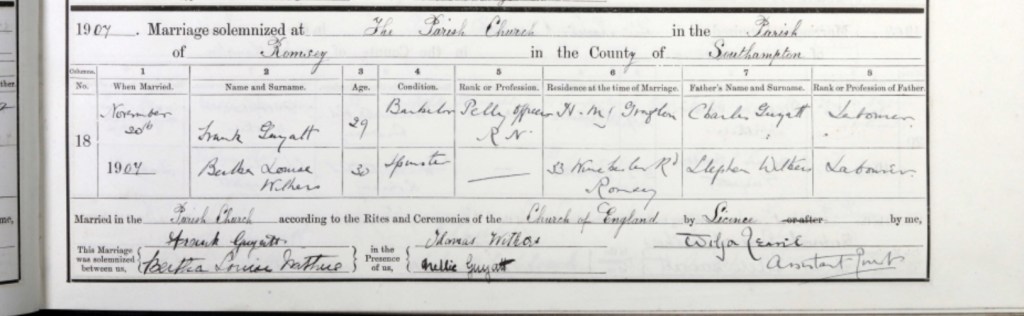 1907. Marriage solemnized at The Parish Church in the Parish
of Romsey in the County of Southampton
Columns. 1 2 3 4 5 6 7 8
No. When Married. Name and Surname. Age. Condition. Rank or Profession. Residence at the time of Marriage. Father's Name and Surname. Rank or Profession of Father.
18 November 20th 1907 Frank Guyatt 29 Bachelor Petty officer R.N. H.M.S Charles Guyatt Labourer
Bertha Louise Withers 30 Spinster 33 Winchester Rd Romsey Stephen Withers Labourer
Married in the Parish Church according to the Rites and Ceremonies of the Church of England by Licence or after by me,
This Marriage was solemnized between us, Frank Guyatt in the Presence of us, Thomas Withers
Bertha Louise Withers Nellie Guyatt Assistant Curate